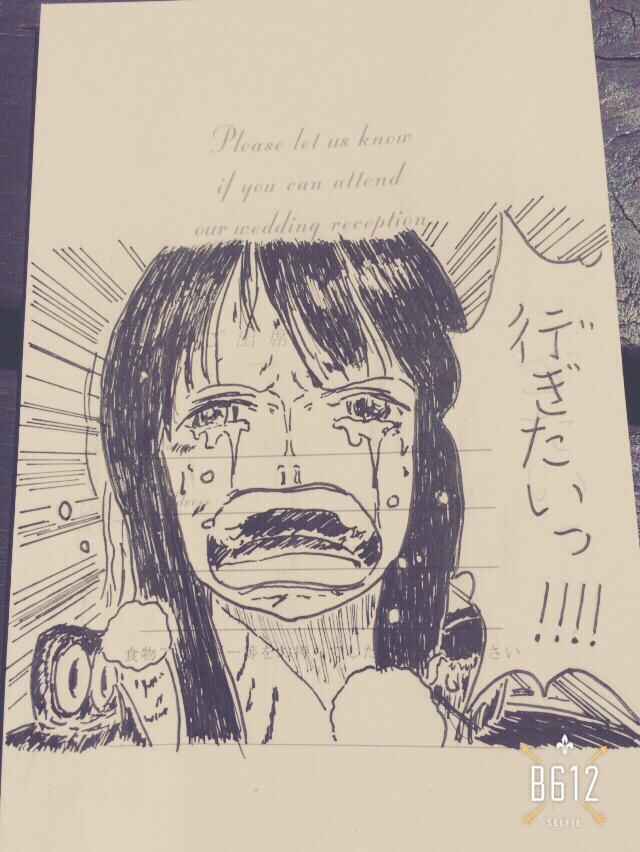 Please let us know
if you can attend
our wedding reception
ご出席
行ぎたいっ!!!!
食物 ー等をお持 した さい
B612
SELFIE